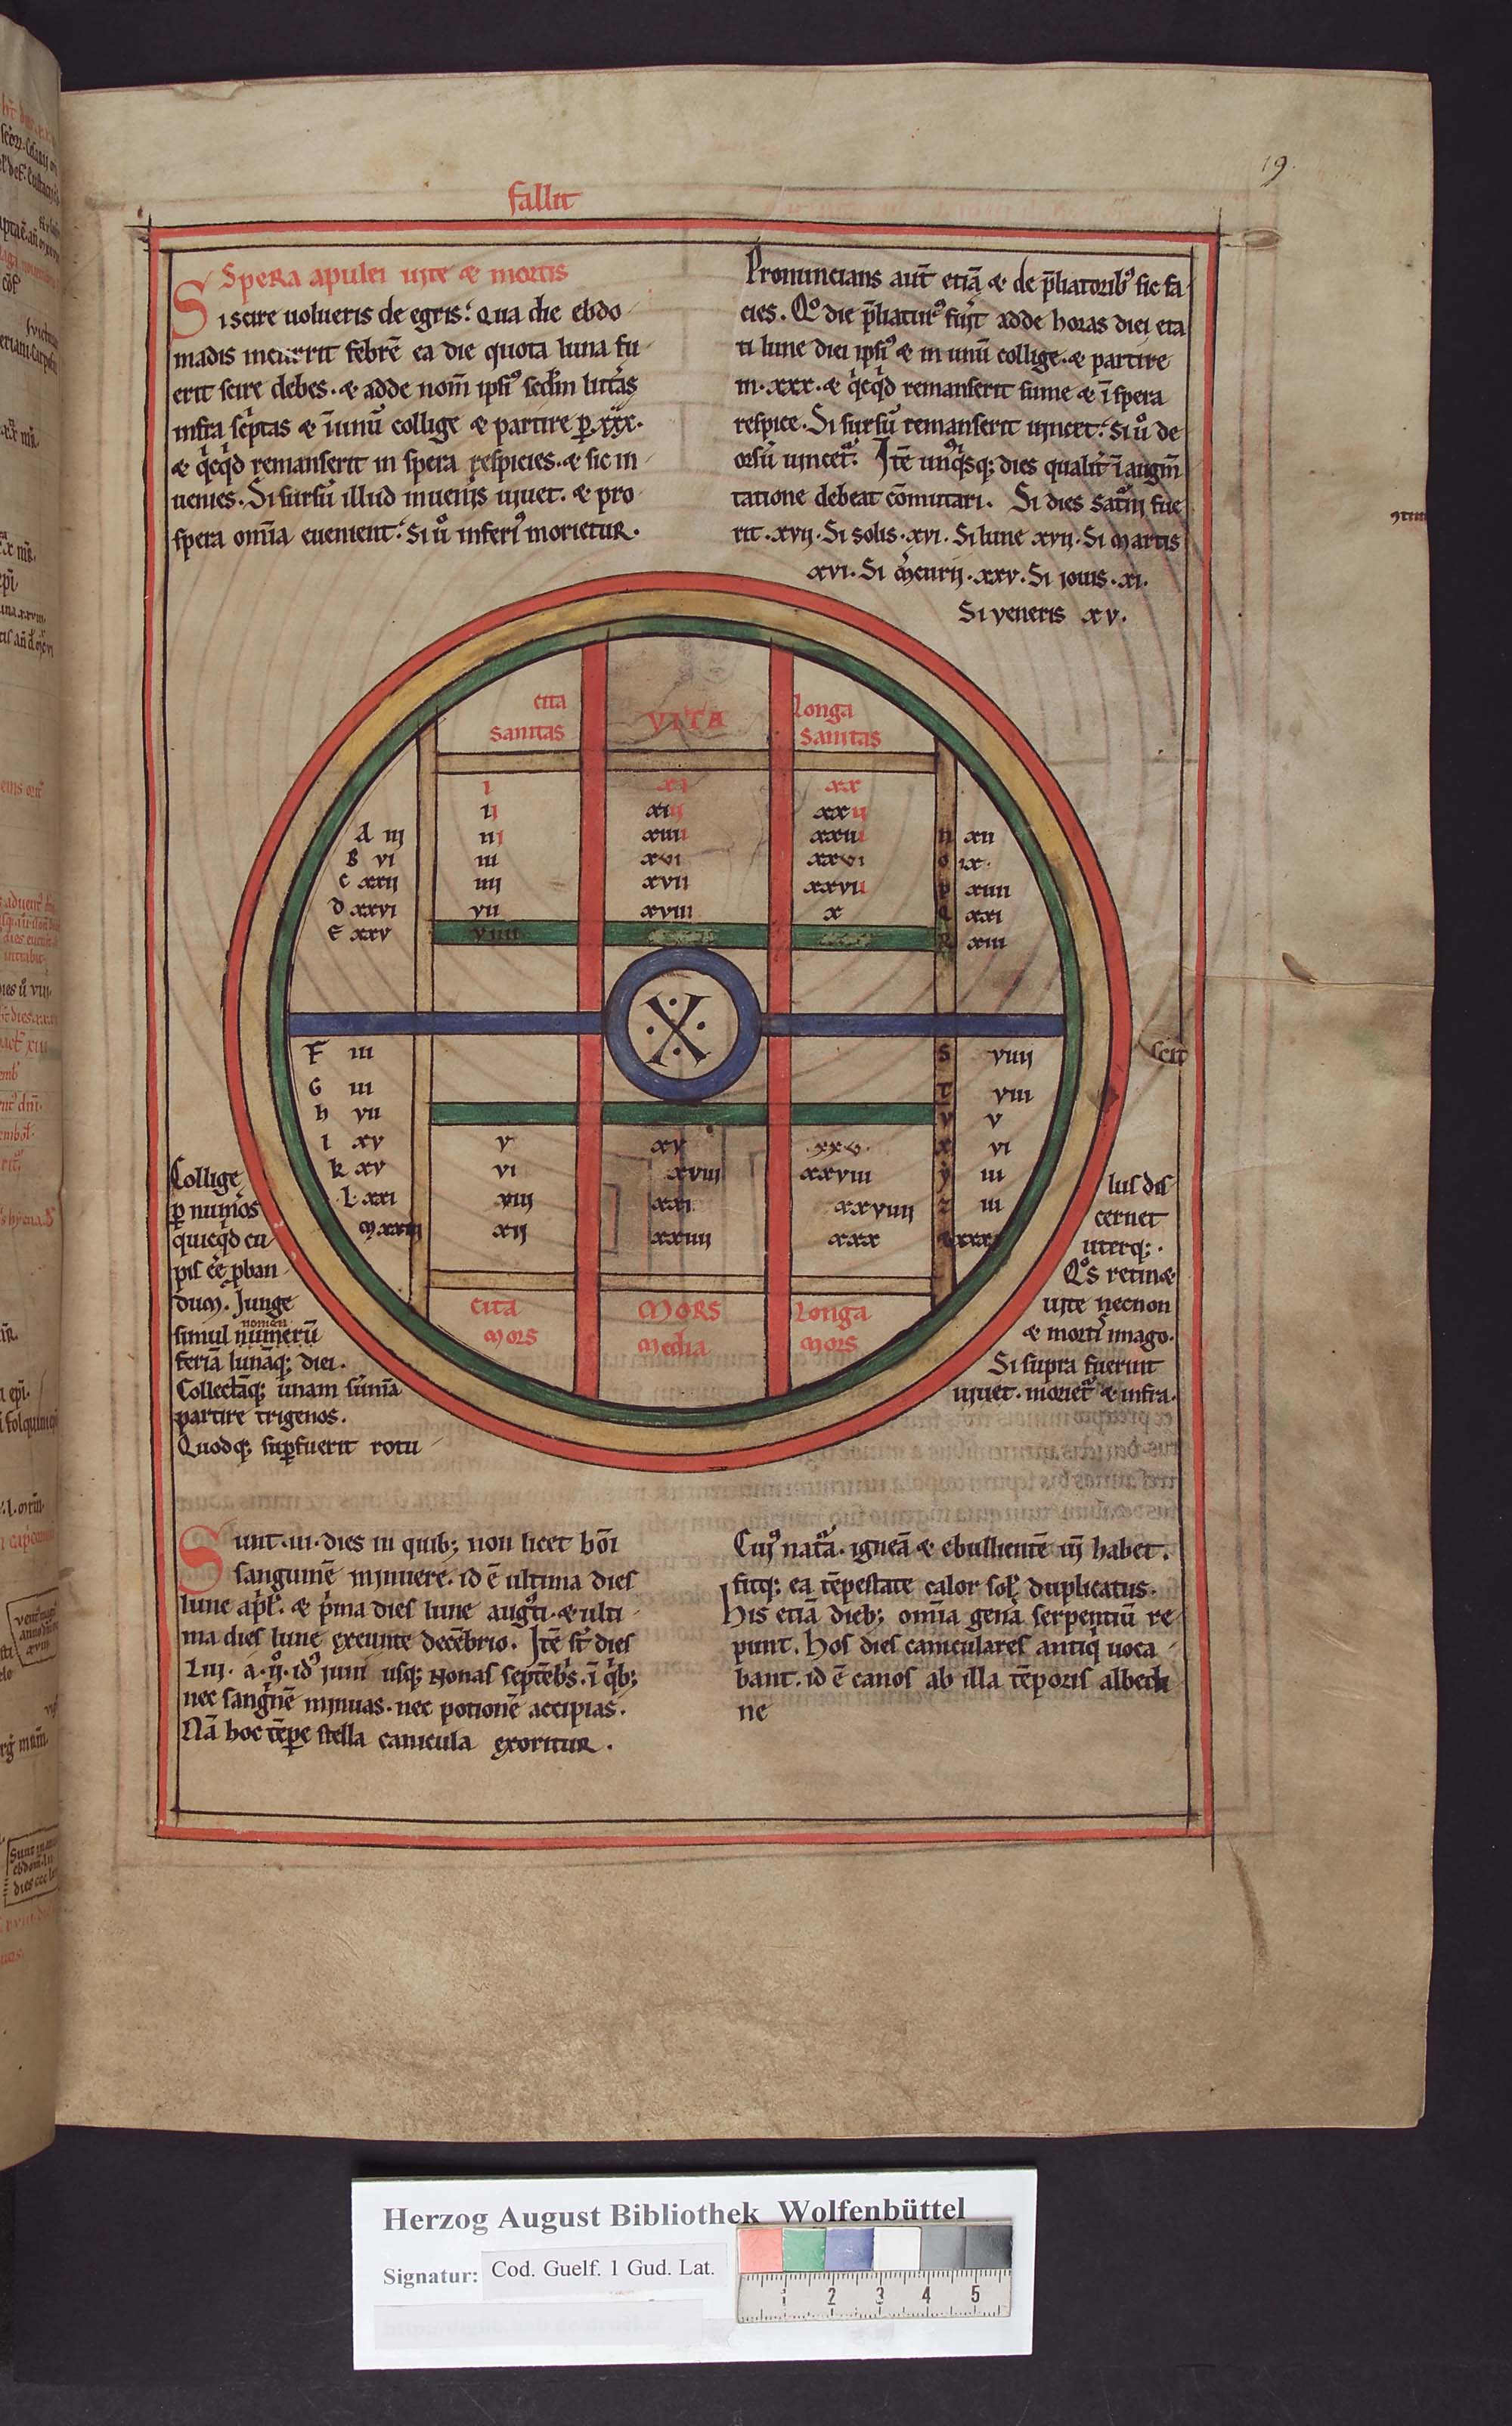 19.
fallit
Spera apulei uite & mortis
Si scire uolueris de egris: qua die ebdo
madis incurrit febrē ea die quota luna fu
erit scire debes. & adde nom̄ ipsiꝰ scdm̄ litt̄as
infra sc͛ptas & ī unū collige & partire p̱ .xxx.
& q͛cq͛d remanserit in spera respicies. & sic in
uenies. Si sursū illud inuenis uiuet. & pro
spera om̄ia euenient: Si ů inferiꝰ morietur.
Pronuncians aut̄ etiā & de p̄liatoribꝰ sic fa
cies. Qͦ die p̄liaturꝰ fuit adde horas diei eta
ti lune diei ipsiꝰ & in unū collige. & partire
in .xxx. & q͛cq͛d remanserit sume & ī spera
respice. Si sursū remanserit uincet: Si ů de
orsū uincet᷑. Itē unꝰq͛sq; dies qualit̄ ī augm̄
tatione debeat cōmutari. Si dies Sat᷑ni fue
rit .xvii. Si solis .xvi. Si lune xvii. Si martis
xvi. Si m͛curii .xxv. Si iouis .xi.
Si veneris xv.
cita
sanitas
VITA
Longa
Sanitas
i xi xx
ii xiii xxii
A iii iii xiiii xxiii n xii
B vi iii xvi xxvi o ix.
C xxii iiii xvii xxvii p xiiii
D xxvi vii xviii x q xxi
E xxv viiii R xiii
X
F iii S viiii
G iii T viii
h vii v v
i xv v xv xxv. x vi
k xv vi xviii xxviii y iii
L xxi viii xxi xxviiii z iii
M xxiii xii xxiiii xxx
Cita
mors
MORS
media
Longa
mors
scit
Collige
p̱ num͛os
quicq͛d cu
pis ēe p̱ban
dum. Junge
nomen
simul numerū
feriā lunāq; diei.
Collectāq; unam sūmā
partire trigenos.
Quodq; sup̱fuerit rotu
lus dis
cernet
uterq;.
Qͦs retin&
uite necnon
& mortis imago.
Si supra fuerint
uiuet. moriet᷑ & infra.
Sunt .iii. dies in quib; non licet hōi
sanguinē minuere. id ē ultima dies
lune apl͛. & p͛ma dies lune augti. & ulti
ma dies lune exeunte decēbrio. Itē st̄ dies
Liii. a .ii. idꝰ iunii usq; Nonas septēbs. ī q͛b;
nec sang͛nē minuas. nec potionē accipias.
Nā hoc tēpe stella canicula exoritur.
Cuiꝰ nat᷑a. igneā & ebullientē uī habet.
fitq; ea tēpestate calor sol͛ duplicatus.
his etiā dieb; om̄ia gen͛a serpentiū re
punt. hos dies caniculares antiq͛ uoca
bant. id ē canos ab illa tēporis albedi
ne
Herzog August Bibliothek Wolfenbüttel
Signatur: Cod. Guelf. 1 Gud. Lat.
1 2 3 4 5